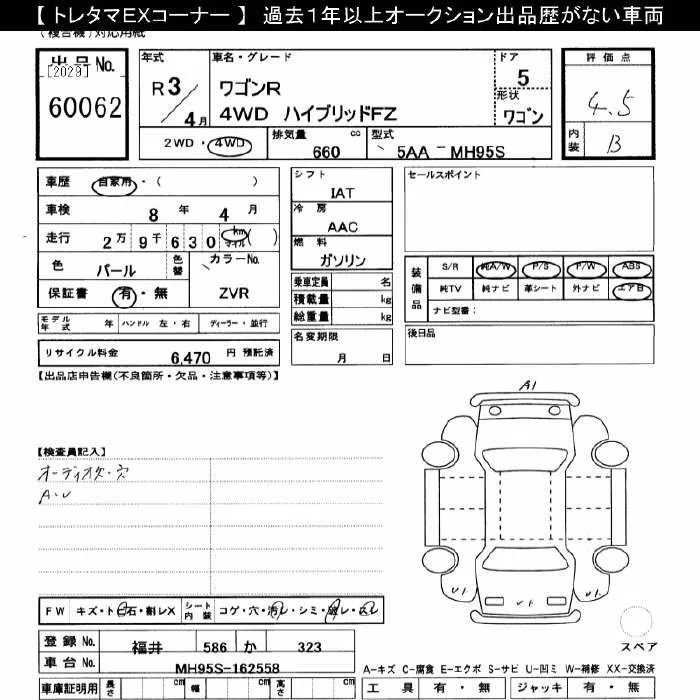 【 トレタマEXコーナー 】 過去1年以上オークション出品歴がない車両
(複合機)対応用紙
出品 No.
[2029]
60062
年式
R 3
4 月
車名・グレード
ワゴンR
4WD ハイブリッドFZ
ドア
5
形状
ワゴン
評価点
4.5
内装
B
2WD ・ 4WD
排気量 cc
660
型式
5AA − MH95S
車歴 自家用 ・ ( )
車検 8 年 4 月
走行 2万 9千 6 3 0 km マイル ( )
色 パール
色替
カラーNo.
ZVR
保証書 有 ・ 無
シフト
IAT
冷房
AAC
燃料
ガソリン
乗車定員 名
積載量 kg
総重量 kg
セールスポイント
装備品
S/R 純A/W P/S P/W ABS
純TV 純ナビ 革シート 外ナビ エアB
ナビ型番：
モデル年式 年 ハンドル 左・右 ディーラー・並行
名変期限
月 日
後日品
リサイクル料金 6,470 円 預託済
【出品店申告欄(不良箇所・欠品・注意事項等)】
A1
【検査員記入】
オーディオ欠・穴
A・U
U1
U1
U1
スペア
FW キズ・ト ビ石・割レX
シート内装
コゲ・穴・汚レ・シミ・破レ
登録 No. 福井 586 か 323
車台 No. MH95S-162558
A-キズ C-腐食 E-エクボ S-サビ U-凹ミ W-補修 XX-交換済
車庫証明用 長さ cm 幅 cm 高さ cm
工具 有 ・ 無 ジャッキ 有 ・ 無